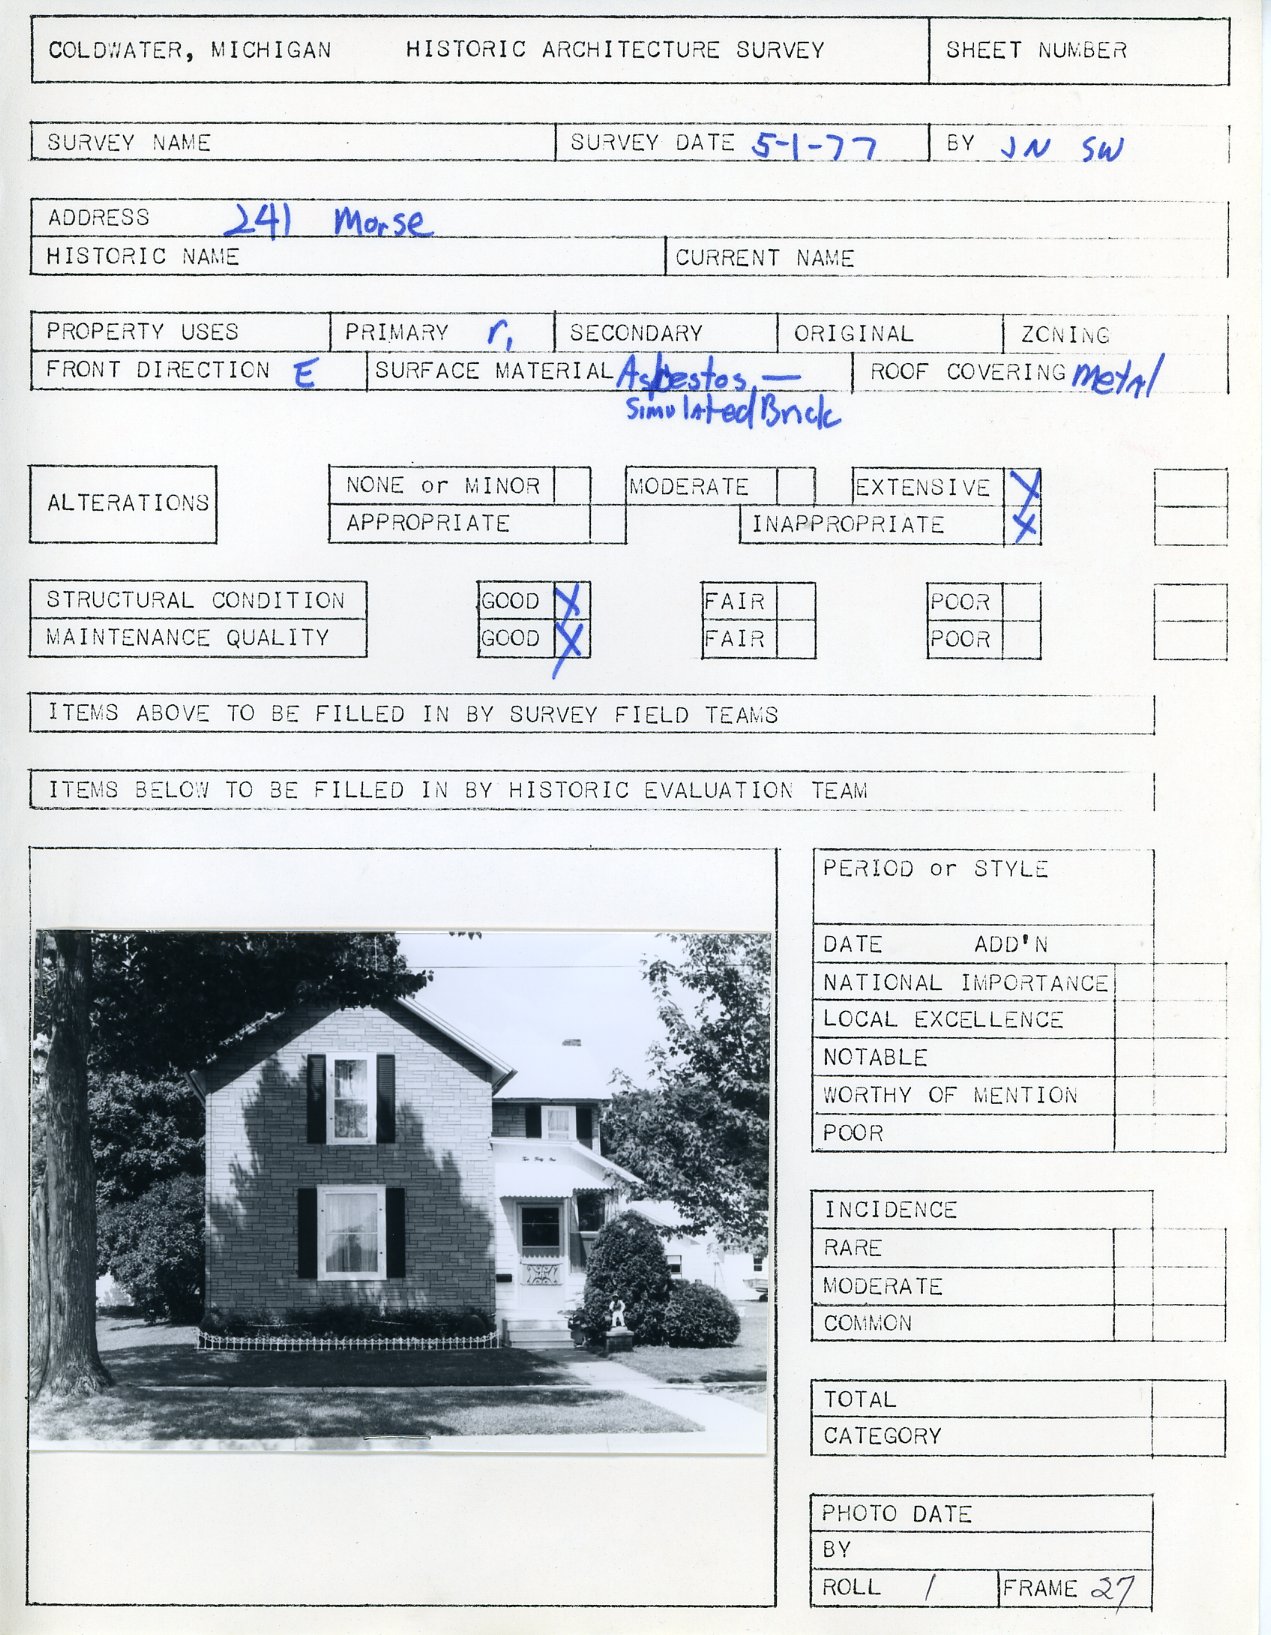 COLDWATER, MICHIGAN HISTORIC ARCHITECTURE SURVEY SHEET NUMBER
SURVEY NAME SURVEY DATE 5-1-77 BY JN SW
ADDRESS 241 Morse
HISTORIC NAME CURRENT NAME
PROPERTY USES PRIMARY r, SECONDARY ORIGINAL ZONING
FRONT DIRECTION E SURFACE MATERIAL Asbestos, — ROOF COVERING Metal
Simulated Brick
ALTERATIONS
NONE or MINOR MODERATE EXTENSIVE X
APPROPRIATE INAPPROPRIATE X
STRUCTURAL CONDITION GOOD X FAIR POOR
MAINTENANCE QUALITY GOOD X FAIR POOR
ITEMS ABOVE TO BE FILLED IN BY SURVEY FIELD TEAMS
ITEMS BELOW TO BE FILLED IN BY HISTORIC EVALUATION TEAM
PERIOD or STYLE
DATE ADD'N
NATIONAL IMPORTANCE
LOCAL EXCELLENCE
NOTABLE
WORTHY OF MENTION
POOR
INCIDENCE
RARE
MODERATE
COMMON
TOTAL
CATEGORY
PHOTO DATE
BY
ROLL 1 FRAME 27